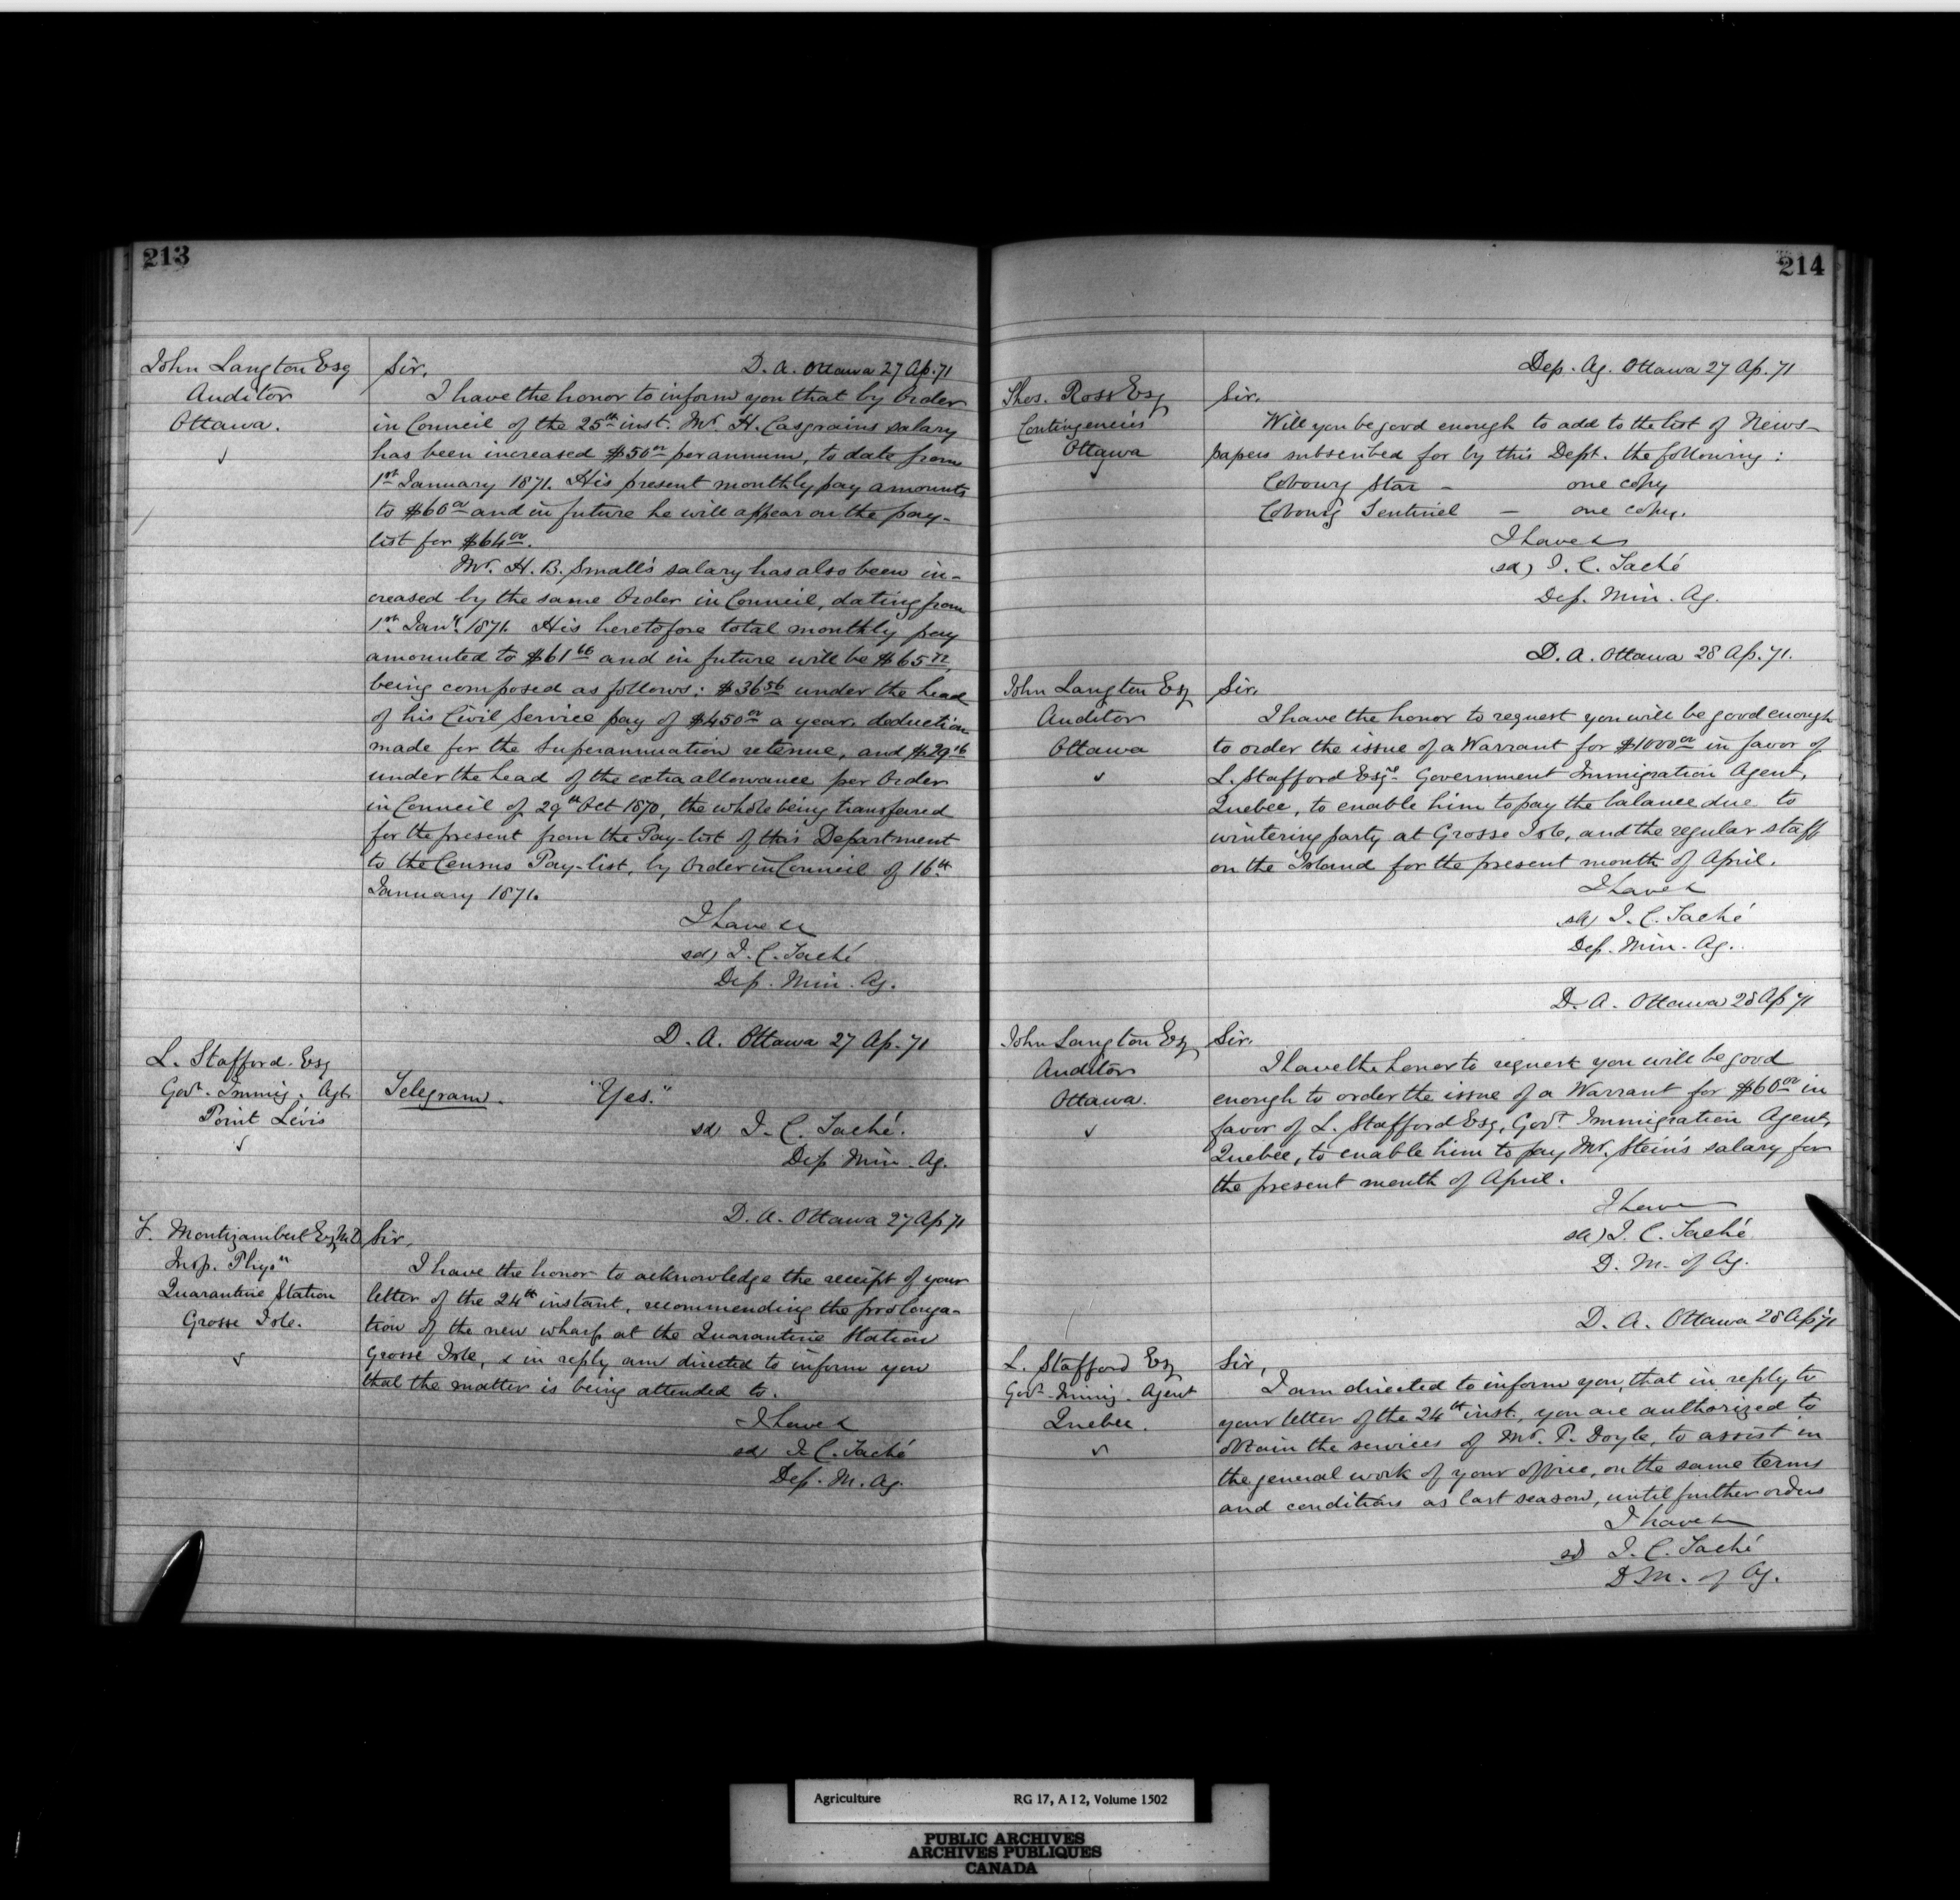 213
John Langton Esq
Auditor
Ottawa.
D. A. Ottawa 27 Ap. 71
Sir,
I have the honor to inform you that by Order
in Council of the 25th inst. Mr. H. Casgrain's salary
has been increased $50 00 per annum, to date from
1st January 1871. His present monthly pay amounts
to $60 00 and in future he will appear on the pay-
list for $64 00.
Mr. H. B. Small's salary has also been in-
creased by the same Order in Council, dating from
1st Jany. 1871. His heretofore total monthly pay
amounted to $61 66 and in future will be $65 72,
being composed as follows: $36 56 under the head
of his Civil Service pay of $450 00 a year, deduction
made for the Superannuation retenue, and $29 16
under the head of the extra allowance per Order
in Council of 29th Oct 1870, the whole being transferred
for the present from the Pay-list of this Department
to the Census Pay-list, by Order in Council of 16th
January 1871.
I have &
sd) J. C. Taché
Dep. Min. Ag.
L. Stafford. Esq
Govt. Immig. Agt.
Point Lévis
D. A. Ottawa 27 Ap. 71
Telegram. "Yes."
sd J. C. Taché.
Dep Min. Ag.
F. Montizambert Esq M.D.
Insp. Physn
Quarantine Station
Grosse Isle.
D. A. Ottawa 27 Ap 71
Sir,
I have the honor to acknowledge the receipt of your
letter of the 24th instant, recommending the prolonga-
tion of the new wharf at the Quarantine Station
Grosse Isle, & in reply am directed to inform you
that the matter is being attended to.
I have &
sd J. C. Taché
Dep. M. Ag.
214
Thos. Ross Esq
Contingencies
Ottawa
Dep. Ag. Ottawa 27 Ap. 71
Sir.
Will you be good enough to add to the list of News-
papers subscribed for by this Dept. the following:
Cobourg Star - one copy
Cobourg Sentinel - one copy.
I have &
sd) J. C. Taché
Dep. Min. Ag.
John Langton Esq
Auditor
Ottawa
D. A. Ottawa 28 Ap. 71.
Sir,
I have the honor to request you will be good enough
to order the issue of a Warrant for $1000 00 in favor of
L. Stafford Esqr. Government Immigration Agent,
Quebec, to enable him to pay the balance due to
wintering party at Grosse Isle, and the regular staff
on the Island for the present month of April.
I have &
sd) J. C. Taché
Dep. Min. Ag.
John Langton Esq
Auditor
Ottawa.
D. A. Ottawa 28 Ap 71
Sir.
I have the honor to request you will be good
enough to order the issue of a Warrant for $60 00 in
favor of L. Stafford Esq, Govt Immigration Agent,
Quebec, to enable him to pay Mr. Stein's salary for
the present month of April.
I have
sd) J. C. Taché
D. M. of Ag.
L. Stafford Esq
Govt Immig. Agent
Quebec.
D. A. Ottawa 28 Ap 71
Sir,
I am directed to inform you, that in reply to
your letter of the 24th inst., you are authorized to
obtain the services of Mr. P. Doyle, to assist in
the general work of your office, on the same terms
and conditions as last season, until further orders
I have &
sd J. C. Taché
D M. of Ag.
Agriculture RG 17, A I 2, Volume 1502
PUBLIC ARCHIVES
ARCHIVES PUBLIQUES
CANADA